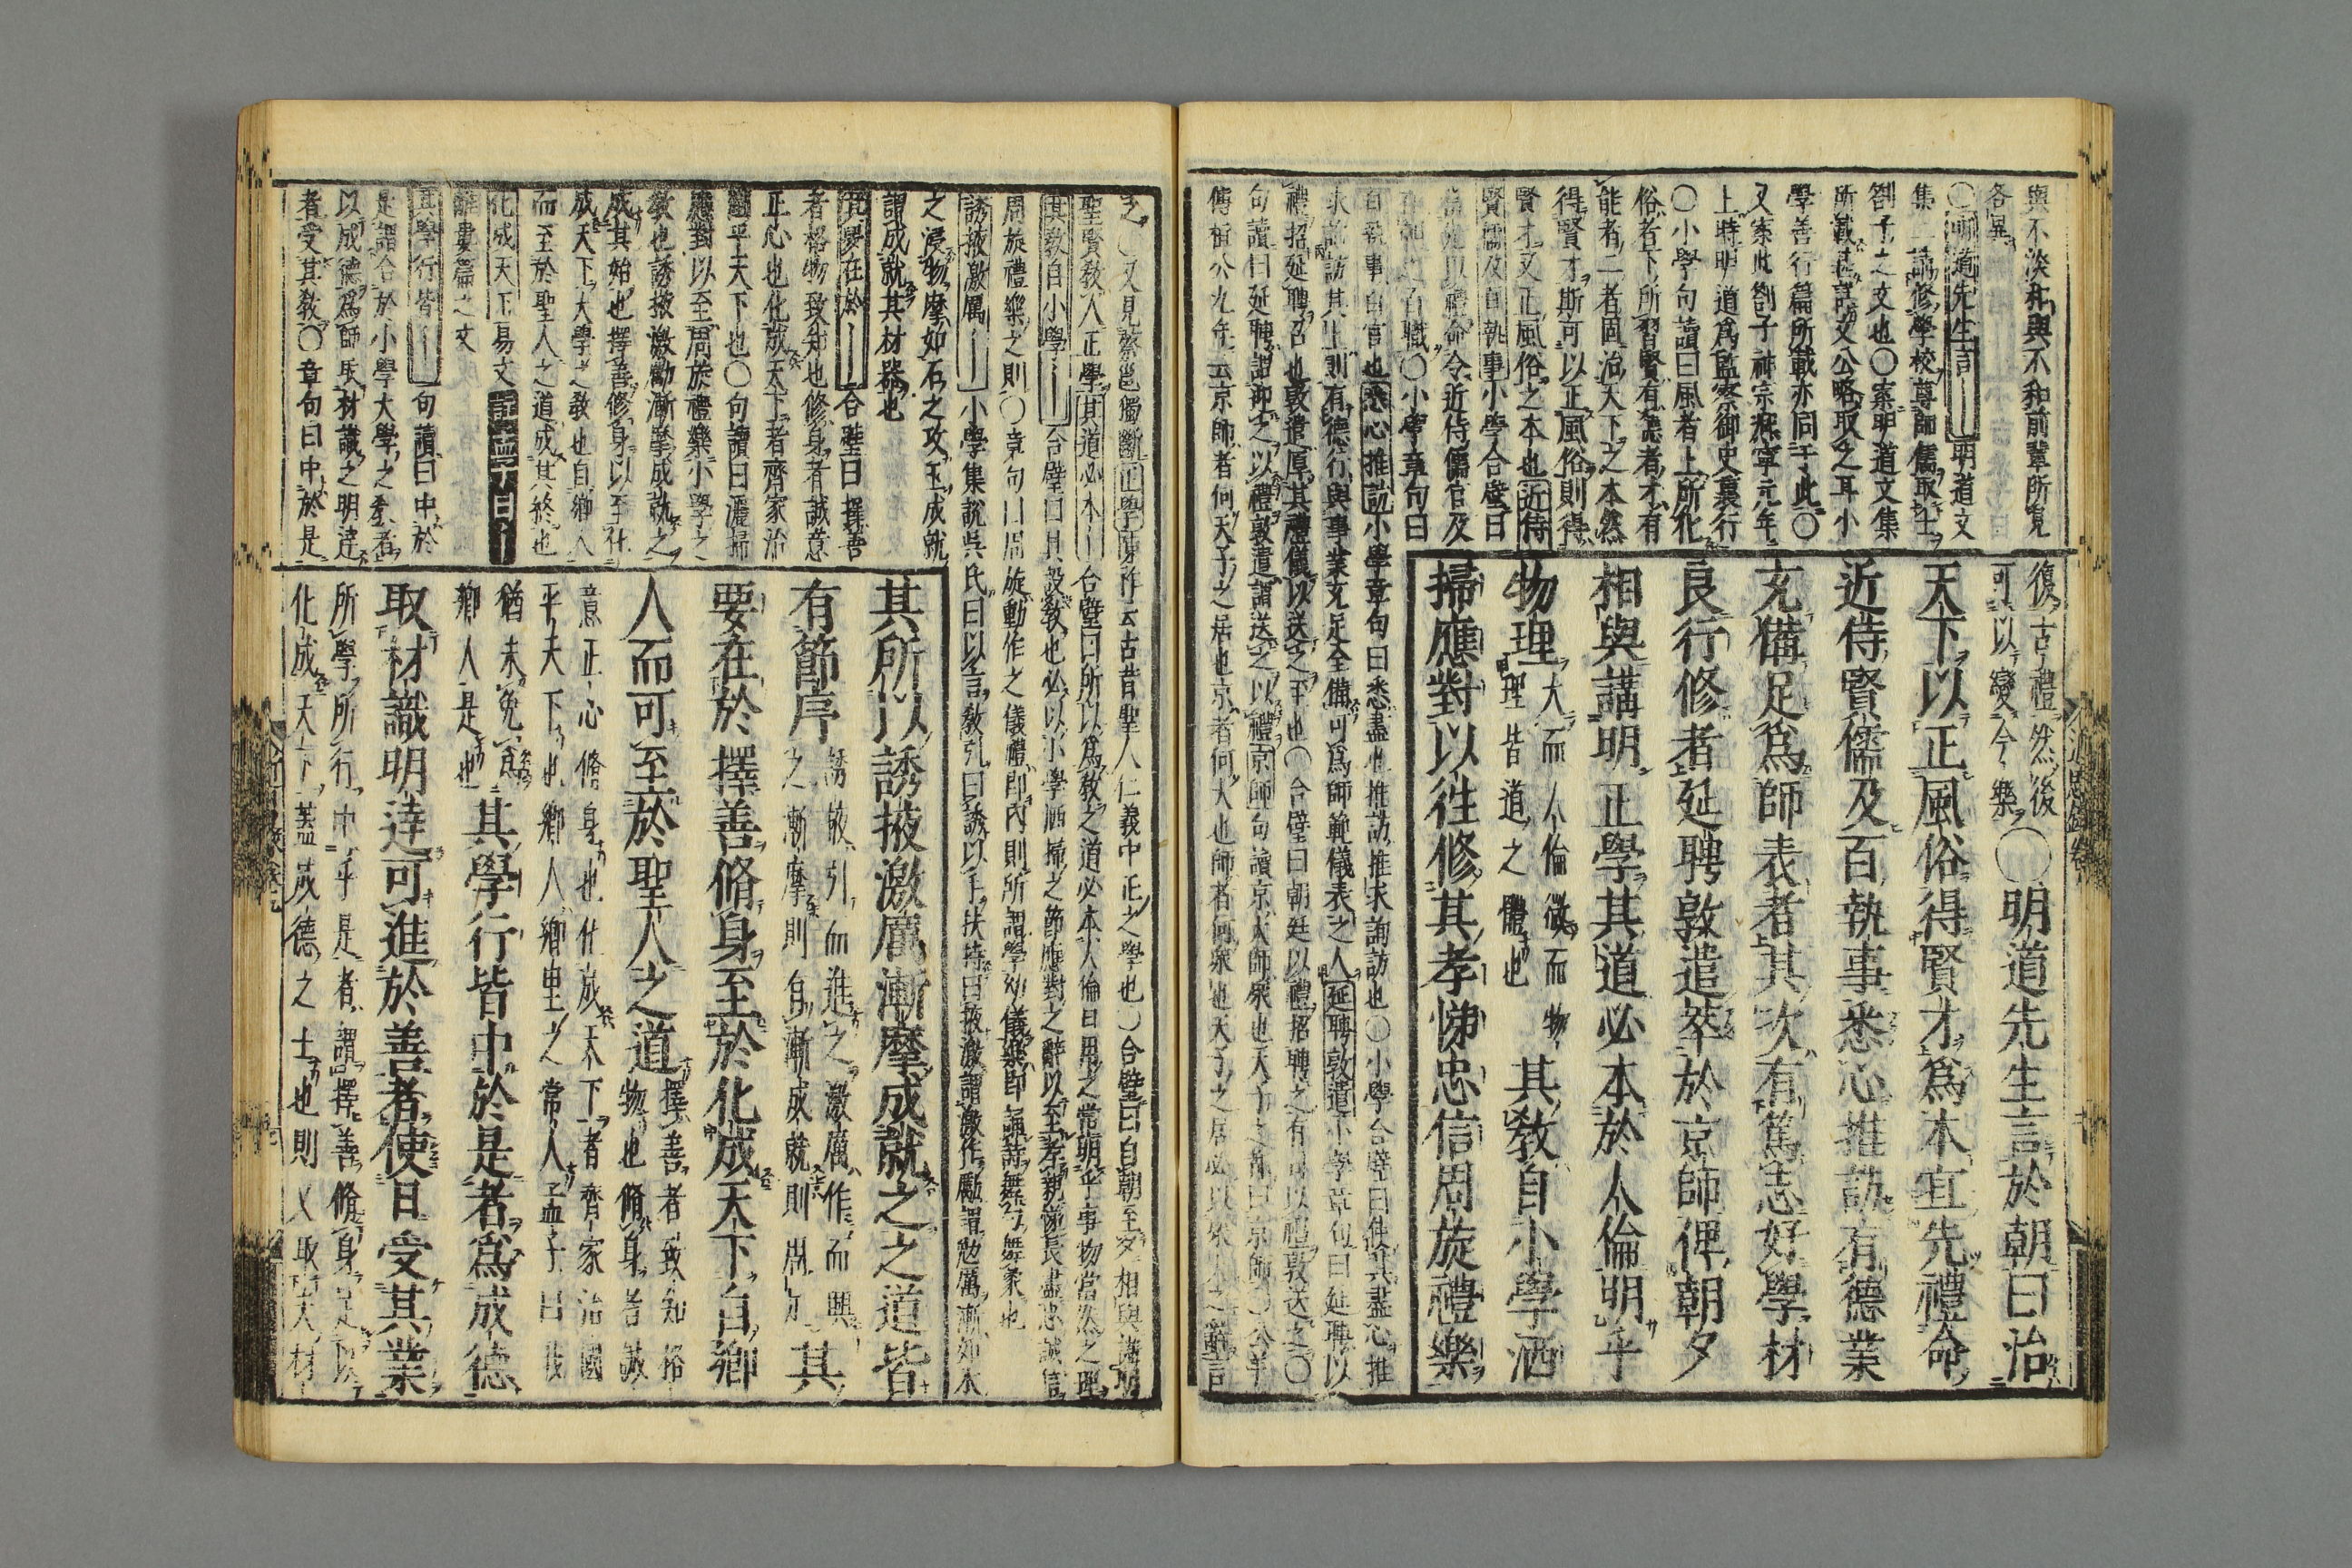 與不淡和與不和前輩所見
各異
〇明道先生言明道文
集二請修學校尊師儒取士
劄子之文也〇案明道文集
所載甚詳文公略取之耳小
學善行篇所載亦同于此〇
又案此劄子神宗熙寧元年
上時明道爲監察御史裏行
〇小學句讀曰風者上所化
俗者下所習賢有德者才有
能者二者固治天下之本然
得賢才斯可以正風俗則得
賢才又正風俗之本也近侍
賢儒及百執事小學合璧曰
近侍儒官及
百職〇小學章句曰
百執事百官也悉心推訪小學章句曰悉盡也推訪推求詢訪也〇小學合璧曰使其盡心推
求詢訪其上則有德行與事業充足全備可爲師範儀表之人延聘敦遣小學章句曰延聘以
禮招延聘召也敦遣厚其禮儀以送之至也〇合璧曰朝廷以禮招聘之有司以禮敦送之〇
句讀曰延聘謂迎之以禮敦遣謂送之以禮京師句讀京大師衆也天子之都曰京師〇公羊
傳桓公九年云京師者何天子之居也京者何大也師者何衆也天子之居必以衆大之辭言
復古禮然後
可以變今樂〇明道先生言於朝曰治
天下以正風俗得賢才爲本宜先禮命
近侍賢儒及百執事悉心推訪有德業
充備足爲師表者其次有篤志好學材
良行修者延聘敦遣萃於京師俾朝夕
相與講明正學其道必本於人倫明乎
物理大而人倫微而物
理皆道之體也其敎自小學洒
掃應對以往修其孝悌忠信周旋禮樂
之〇又見蔡邕獨斷正學陳祚云古昔聖人仁義中正之學也〇合璧曰自朝至夕相與講明
聖賢敎人正學其道必本合璧曰所以爲敎之道必本人倫日用之常明乎事物當然之理
其敎自小學合璧曰其設敎也必以小學洒掃之節應對之辭以至孝親悌長盡忠誠信
周旋禮樂之則〇章句曰周旋動作之儀禮即內則所謂學幼儀樂即誦詩舞勺舞象也
誘掖激厲小學集說吳氏曰以言敎引曰誘以手扶持曰掖激謂激作勵謂勉厲漸如水
之浸物摩如石之攻玉成就
謂成就其材器也
其要在於合璧曰擇善
者格物致知也修身者誠意
正心也化成天下者齊家治
國平天下也〇句讀曰灑掃
應對以至周於禮樂小學之
敎也誘掖激勵漸摩成就之
成其始也擇善修身以至化
成天下大學之敎也自鄉人
而至於聖人之道成其終也
化成天下易文孟子曰
離婁篇之文
其學行皆句讀曰中於
是謂合於小學大學之敎者
以成德爲師取材識之明達
者受其敎〇章句曰中於是
其所以誘掖激厲漸摩成就之之道皆
有節序誘掖引而進之激厲作而興
之漸摩則有漸成就則周足其
要在於擇善脩身至於化成天下自鄉
人而可至於聖人之道擇善者致知格
物也脩身者誠
意正心脩身也化成天下者齊家治國
平天下也鄉人鄉里之常人孟子曰我
猶未免爲
鄉人是也其學行皆中於是者爲成德
取材識明達可進於善者使日受其業
所學所行中乎是者謂擇善脩身足以
化成天下蓋成德之士也則又取夫材